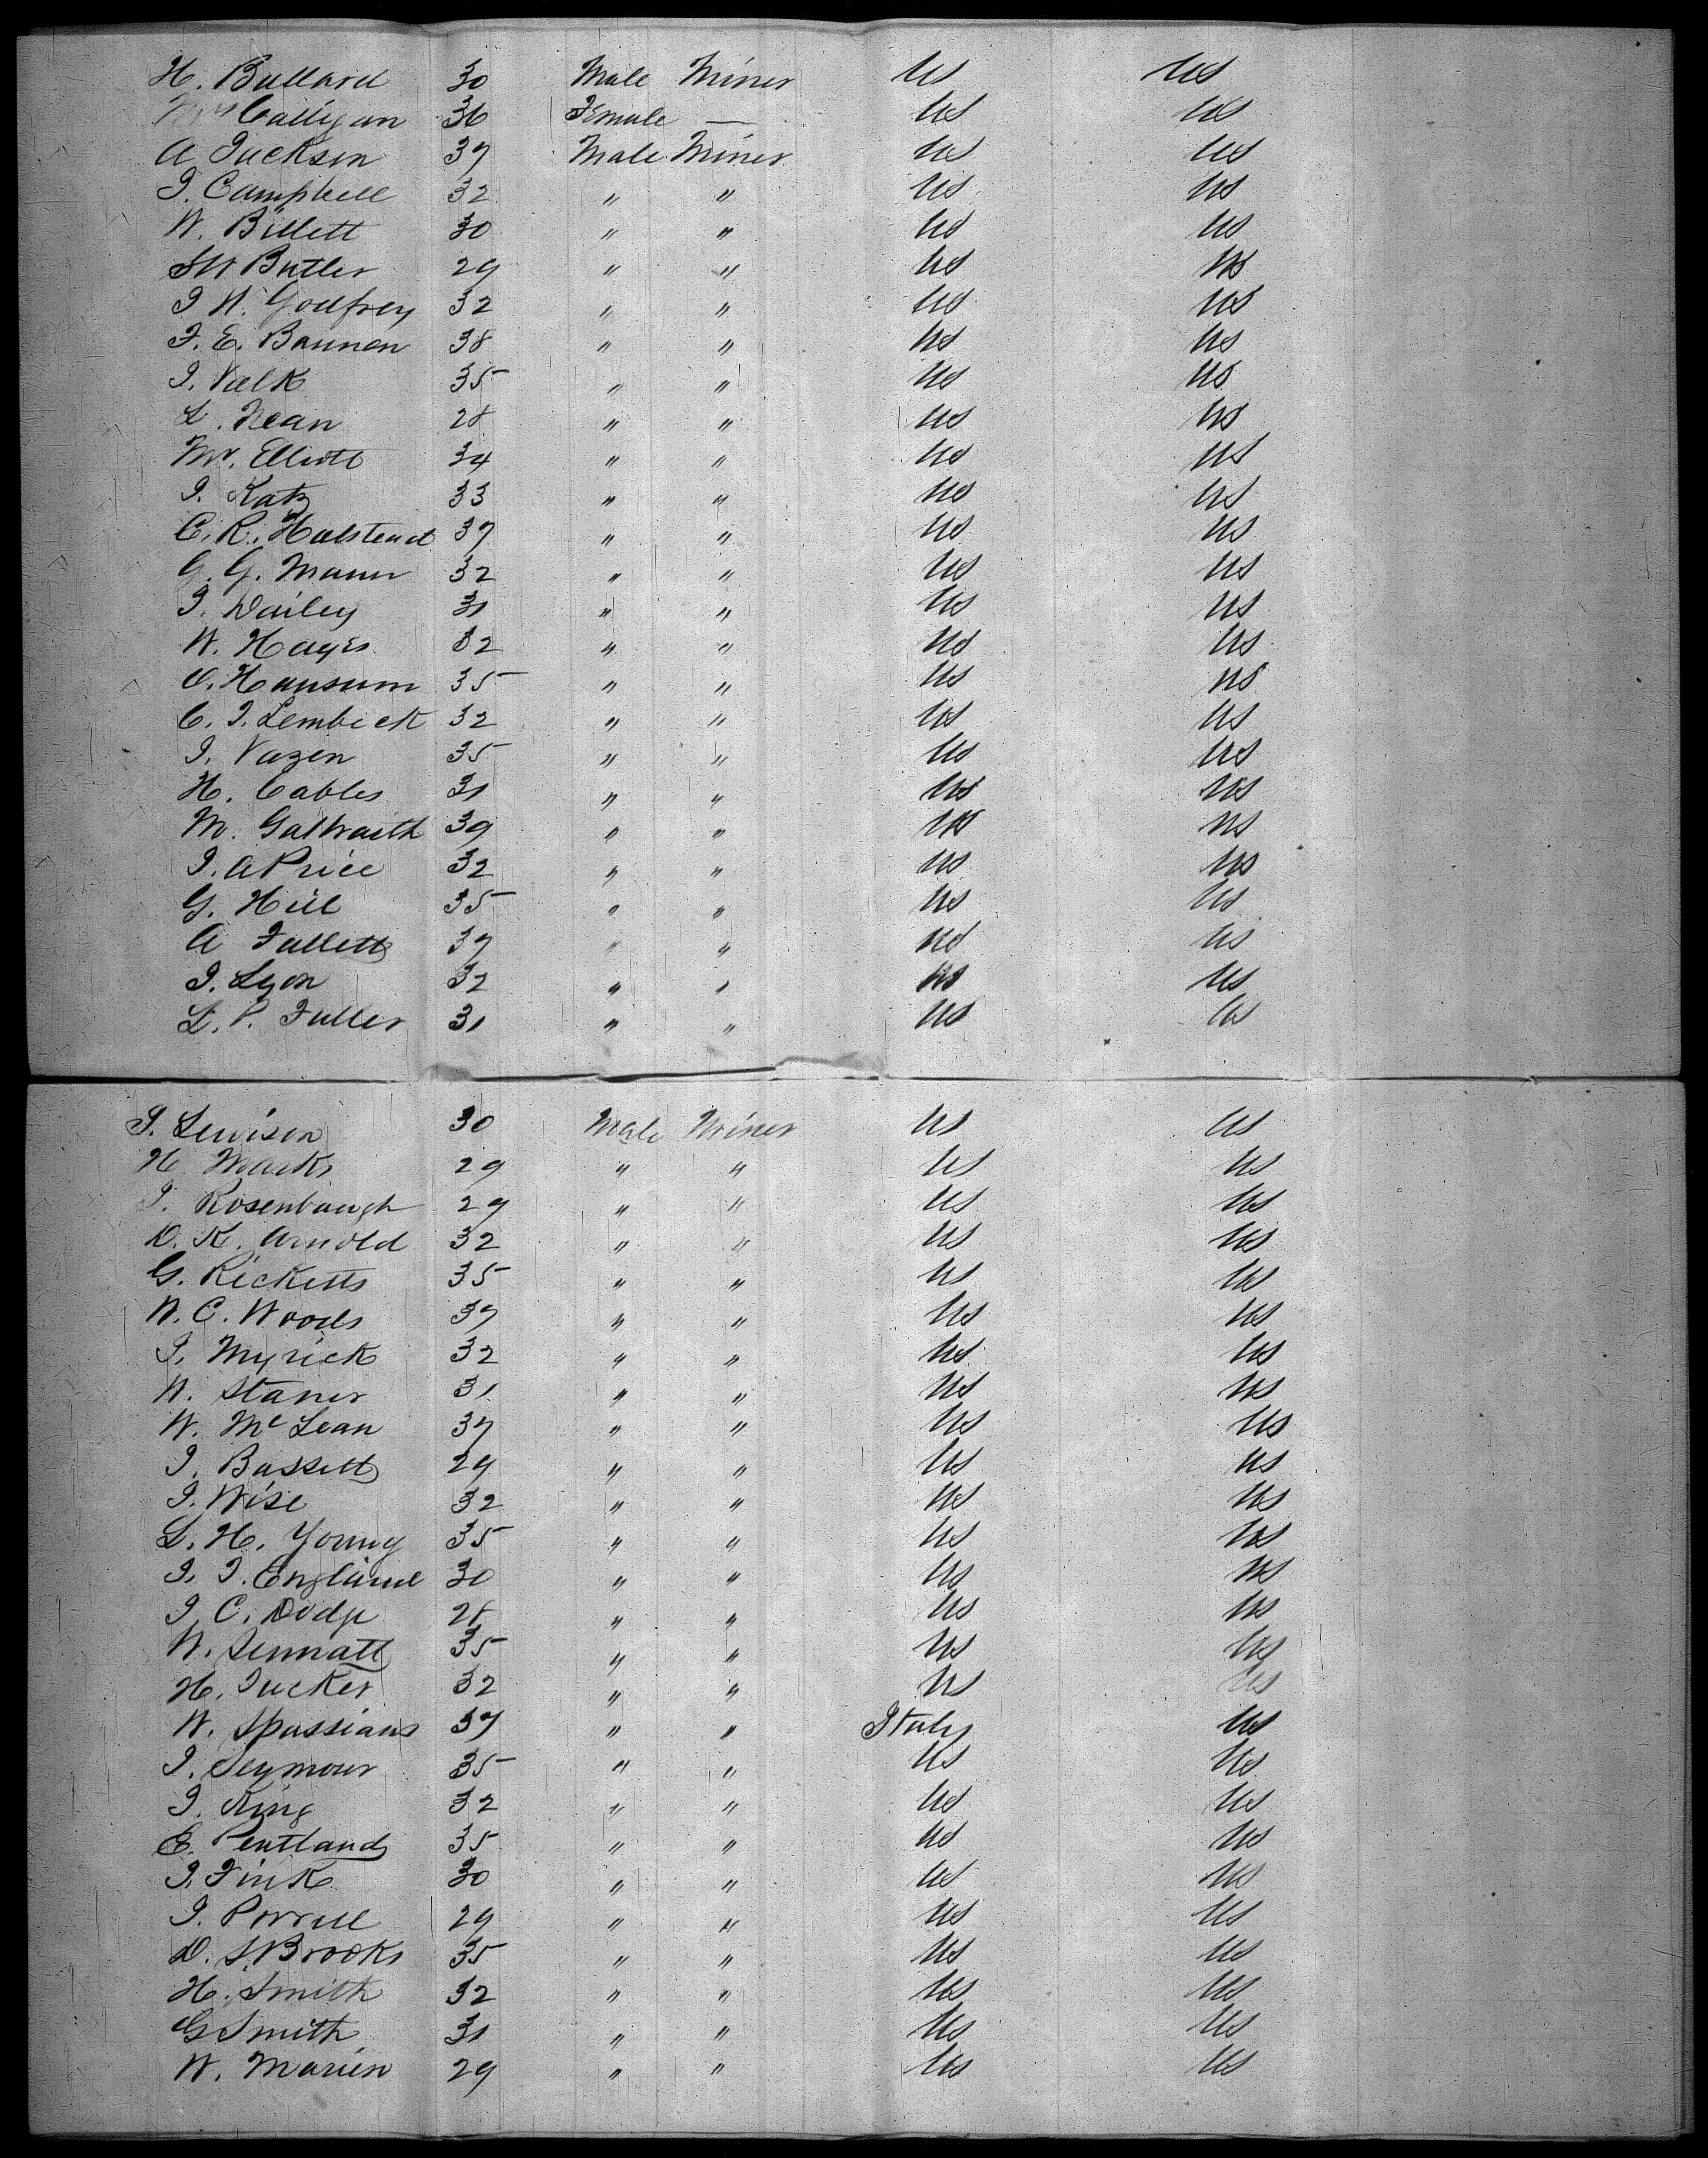 H. Bullard 30 Male Miner US US
Mrs Calligan 36 Female — US US
A Jackson 37 Male Miner US US
J. Campbell 32 " " US US
W. Billett 30 " " US US
SW Butler 29 " " US US
J W. Godfrey 32 " " US US
F. E. Bannon 38 " " US US
J. Valk 35 " " US US
L. Nean 28 " " US US
Mr. Elliott 34 " " US US
J. Katz 33 " " US US
C. R. Halstead 37 " " US US
G. G. Mann 32 " " US US
J. Dailey 31 " " US US
W. Hays 32 " " US US
O. Hansum 35 " " US US
C. J. Lembeck 32 " " US US
J. Vazen 35 " " US US
H. Cables 31 " " US US
M. Galbraith 39 " " US US
J. A Price 32 " " US US
G. Hill 35 " " US US
A Falletts 37 " " US US
J. Lyon 32 " " US US
L. P. Fuller 31 " " US US
J. Lewison 30 Male Miner US US
H Marks 29 " " US US
J. Rosenbaugh 29 " " US US
D. K. Arnold 32 " " US US
G. Ricketts 35 " " US US
W. C. Woods 37 " " US US
J. Myrick 32 " " US US
W. Starrer 31 " " US US
W. Mc Lean 37 " " US US
J. Bassett 29 " " US US
J. Wise 32 " " US US
L. H. Young 35 " " US US
J. J. England 30 " " US US
J. C. Dodge 28 " " US US
W. Sennatt 35 " " US US
H. Tucker 32 " " US US
W. Spassians 37 " " Italy US
J. Seymour 35 " " US US
J. King 32 " " US US
E. Pentland 35 " " US US
J. Fink 30 " " US US
J. Porrell 29 " " US US
D. S. Brooks 35 " " US US
H. Smith 32 " " US US
G Smith 31 " " US US
W. Marien 29 " " US US